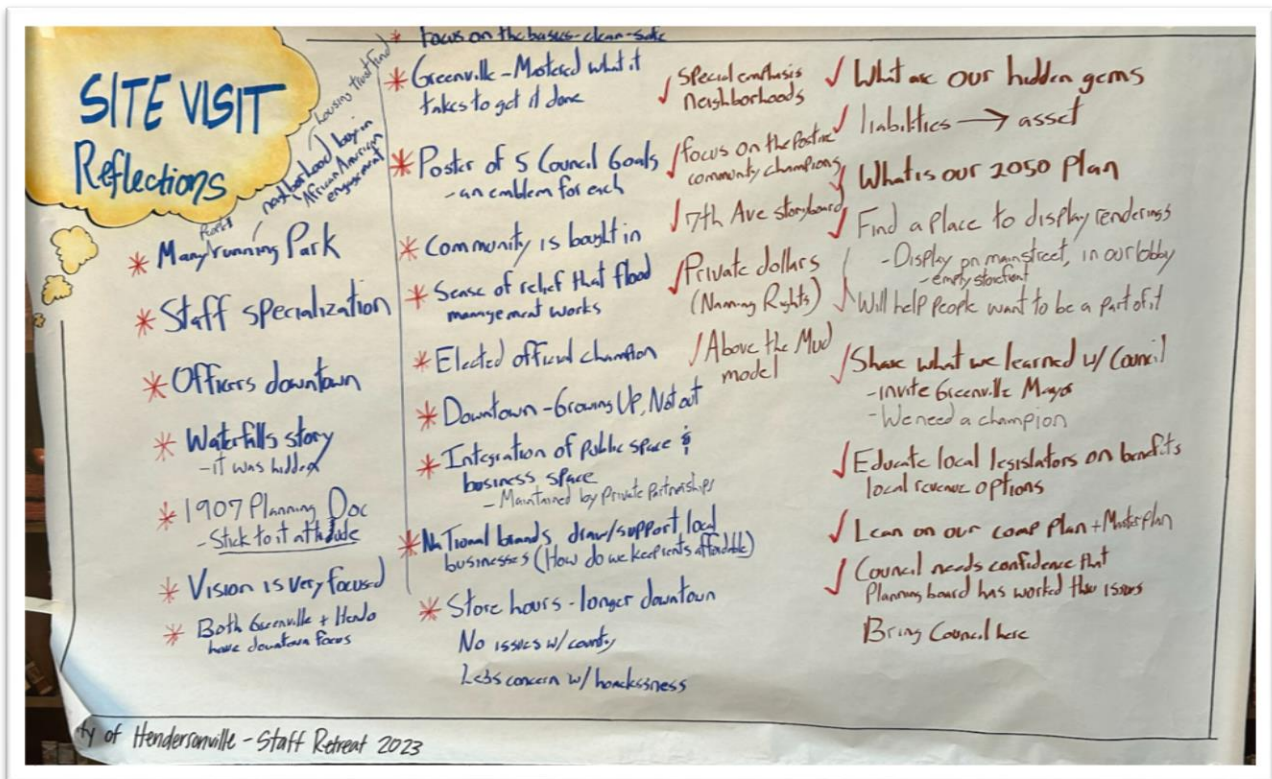 SITE VISIT
Reflections
Housing trust fund
neighborhood buy-in
African American
engagement
* Many running Park
* Staff specialization
* Officers downtown
* Waterfalls story
- it was hidden
* 1907 Planning Doc
- Stick to it attitude
* Vision is very focused
* Both Greenville + Hendo
have downtown focus
* Focus on the basics - clean - safe
* Greenville - Mastered what it
takes to get it done
* Poster of 5 Council Goals
- an emblem for each
* Community is bought in
* Sense of relief that flood
management works
* Elected official champion
* Downtown - Growing Up, Not out
* Integration of public space &
business space
- Maintained by Private Partnerships
* National brands draw/support local
businesses (How do we keep rents affordable)
* Store hours - longer downtown
No issues w/ county
Less concern w/ homelessness
✓ Special emphasis
neighborhoods
✓ focus on the Positive
community champions
✓ 7th Ave storyboard
✓ Private dollars
(Naming Rights)
✓ Above the Mud
model
✓ What are our hidden gems
✓ liabilities → asset
✓ What is our 2050 Plan
✓ Find a Place to display renderings
- Display on mainstreet, in our lobby
- empty storefront
✓ Will help people want to be a part of it
✓ Share what we learned w/ Council
- Invite Greenville Mayor
- We need a champion
✓ Educate local legislators on benefits
local revenue options
✓ Lean on our comp plan + Master plan
✓ Council needs confidence that
Planning board has worked thru issues
Bring Council here
ty of Hendersonville - Staff Retreat 2023